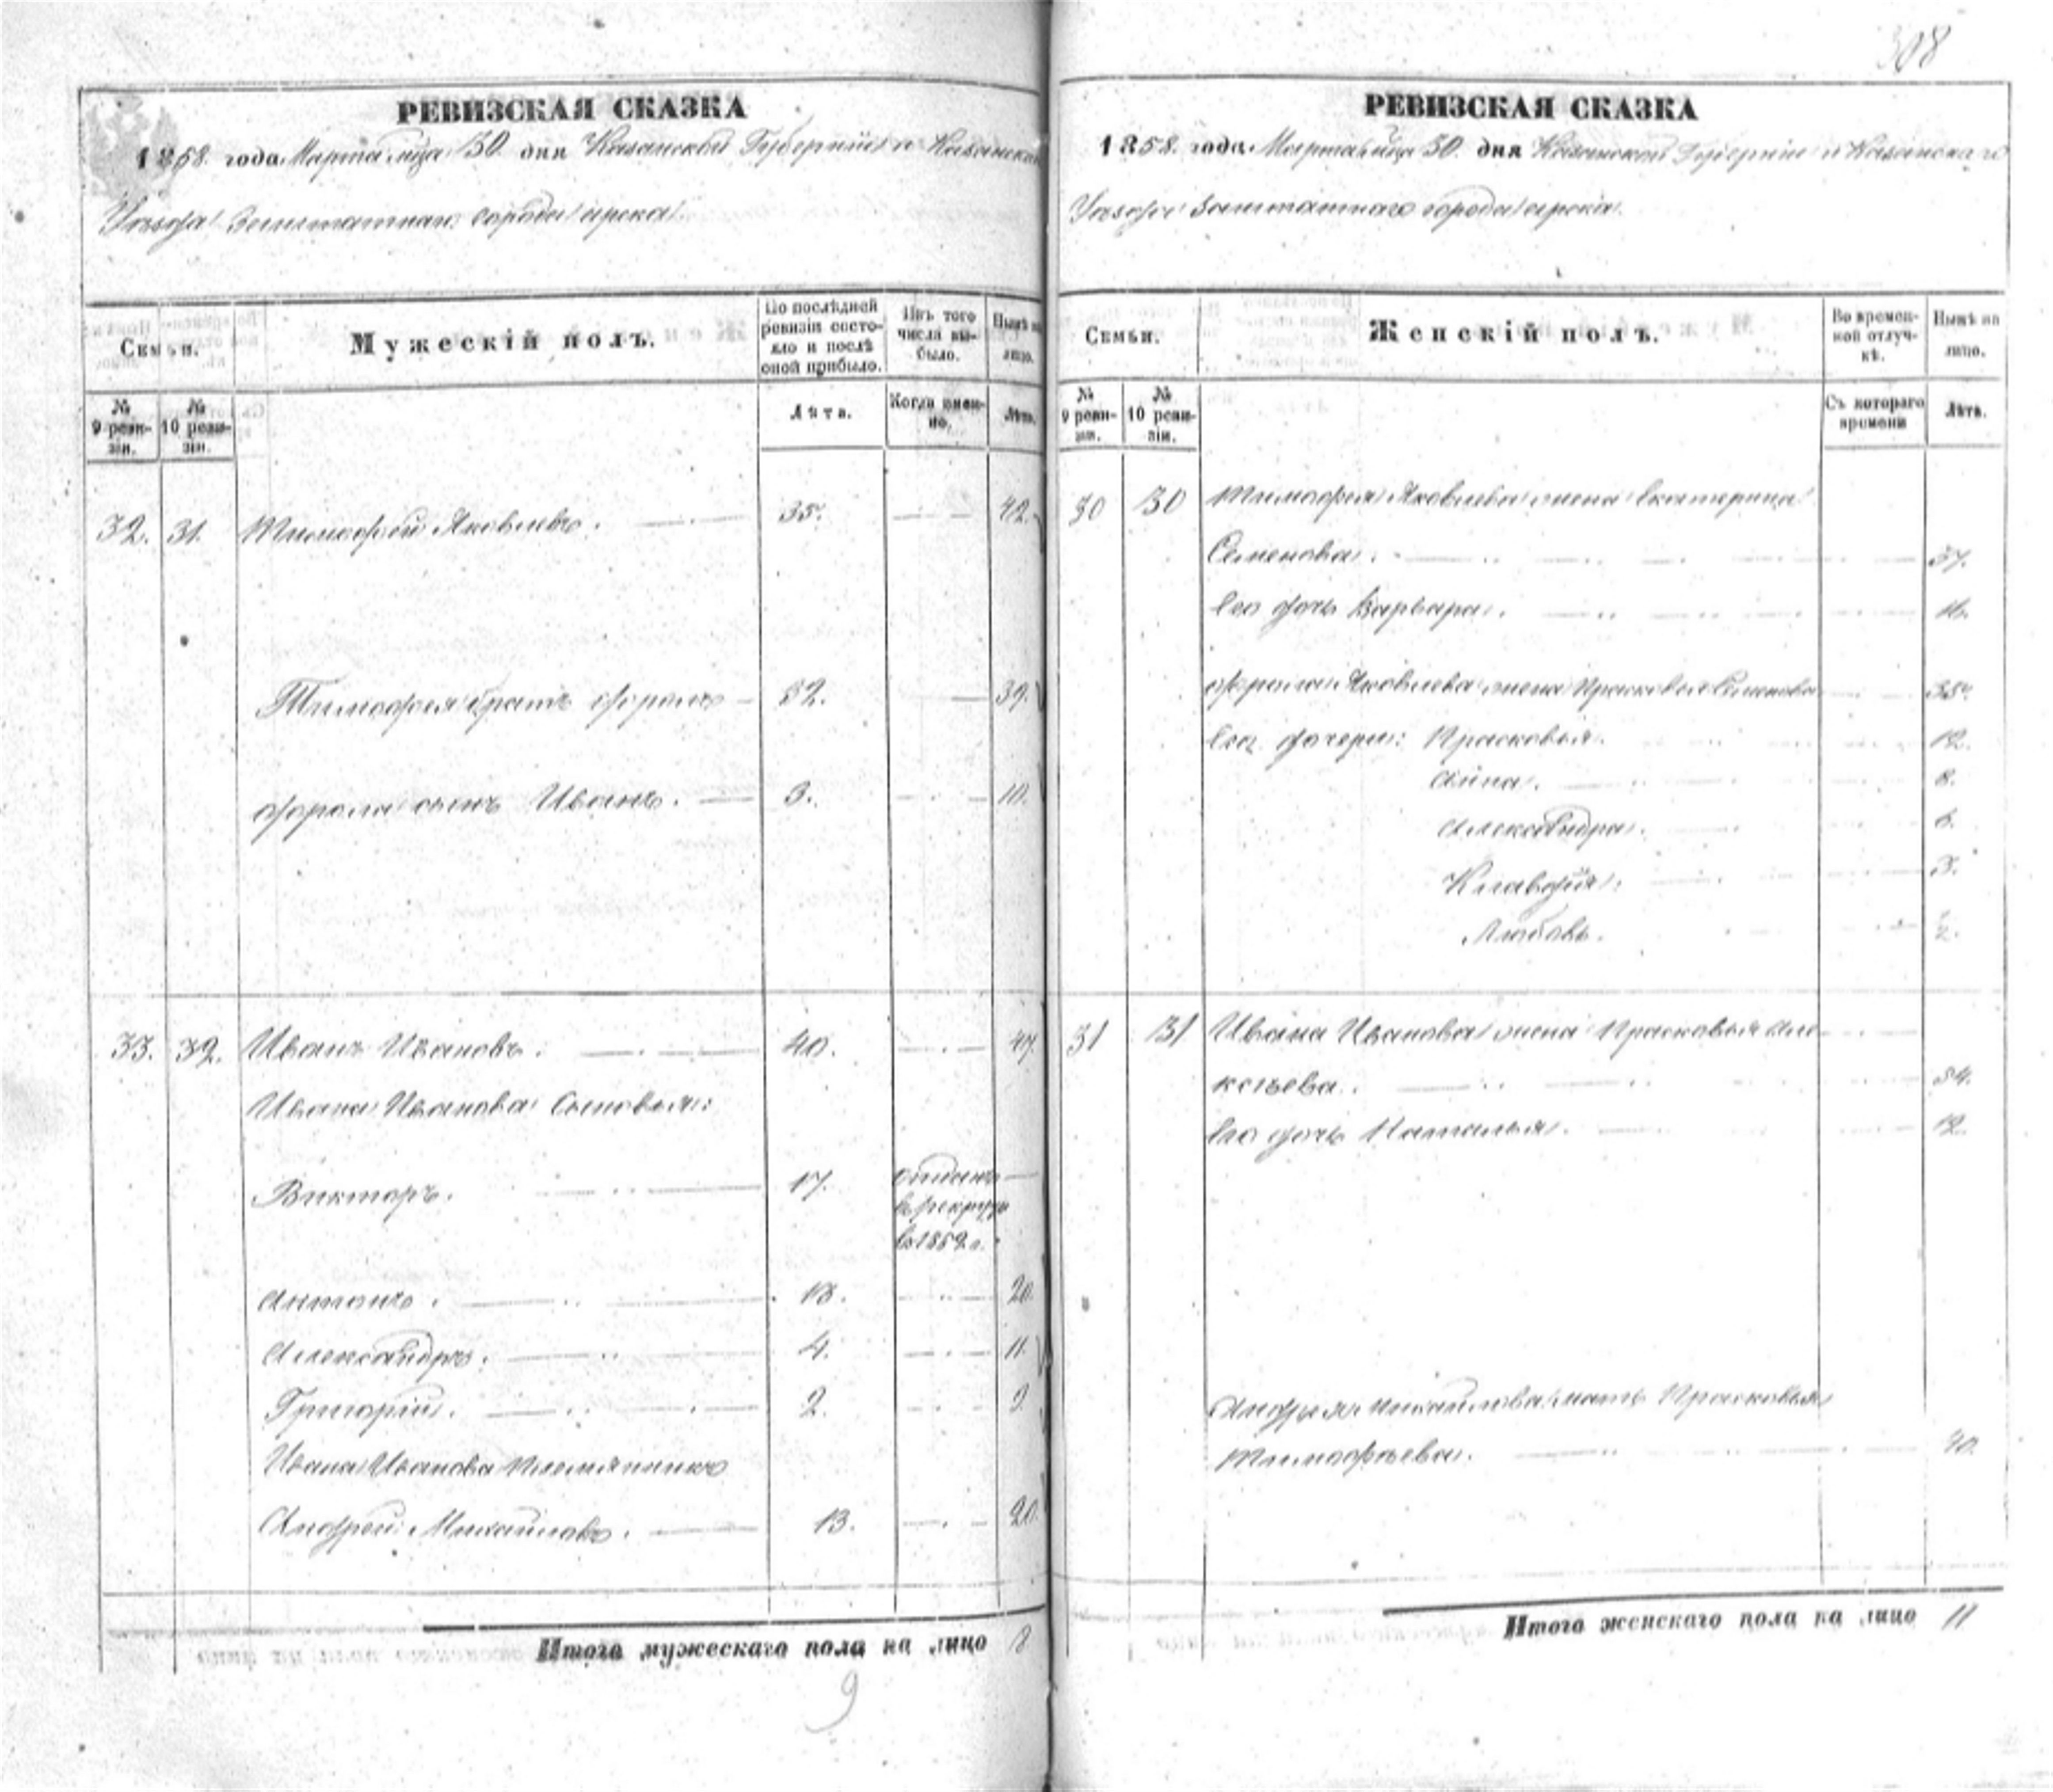 308
РЕВИЗСКАЯ СКАЗКА
1858. года Марта м-ца 30. дня Казанской Губернiи и Казанска
Уѣзда Заштатнаго города Арска.
Семьи.
Мужескiй полъ.
По послѣдней ревизiи состояло и послѣ оной прибыло.
Изъ того числа выбыло.
Нынѣ на лицо.
№ 9 ревизiи.
№ 10 ревизiи.
Лѣта.
Когда именно.
Лѣта.
32. 31. Тимофей Яковлевъ. 35. 42.
Тимофея братъ Фролъ 32. 39.
Фрола сынъ Иванъ. 3. 10.
33. 32. Иванъ Ивановъ. 40. 47.
Ивана Иванова Сыновья:
Викторъ. 17. отданъ
въ рекруты
въ 1852 г.
Антонъ. 13. 20.
Александръ. 4. 11.
Григорiй. 2. 9
Ивана Иванова племянникъ
Андрей Михайловъ. 13. 20.
Итого мужескаго пола на лицо 8
9
РЕВИЗСКАЯ СКАЗКА
1858. года Марта м-ца 30. дня Казанской Губернiи и Казанскаго
Уѣзда Заштатнаго города Арска.
Семьи.
Женскiй полъ.
Во временной отлучкѣ.
Нынѣ на лицо.
№ 9 ревизiи.
№ 10 ревизiи.
Съ котораго времени
Лѣта.
30 30 Тимофея Яковлева жена Екатерина
Семенова. 37.
Его дочь Варвара. 16.
Фрола Яковлева жена Прасковья Семенова 35.
Его дочери: Прасковья. 12.
Анна. 8.
Александра. 6.
Клавдiя. 3.
Любовь. 2.
31 31 Ивана Иванова жена Прасковья Але
ксѣева. 54.
Его дочь Наталья. 12.
Андрея Михайлова мать Прасковья
Тимофѣева. 40.
Итого женскаго пола на лицо 11